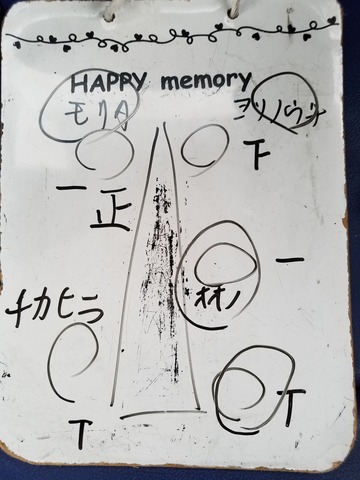 HAPPY memory
モリA
ヨリノウチ
下
一
正
一
オオノ
チカヒラ
T
T